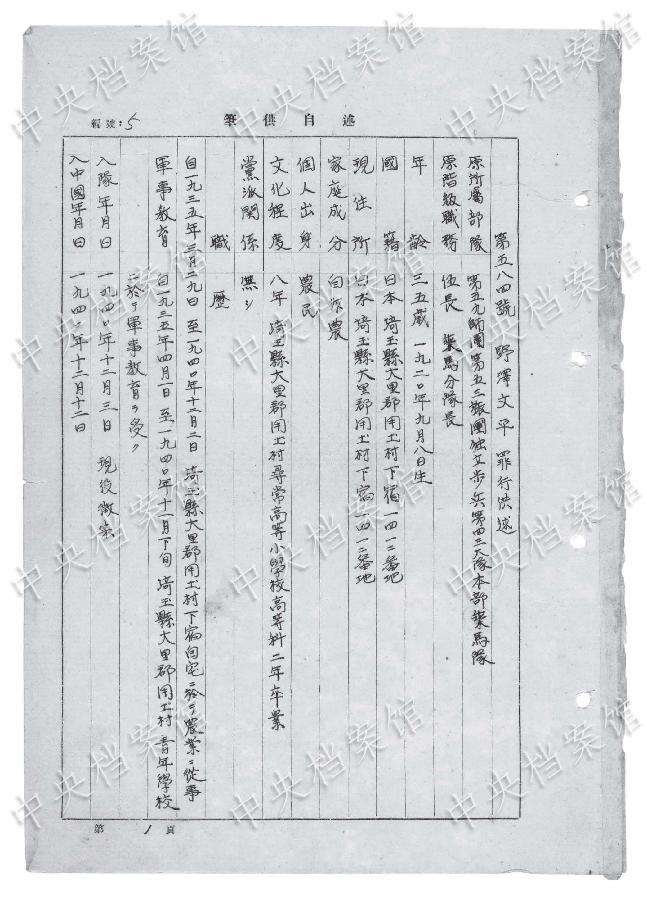 述自供筆
編號：5
第五八四號 野澤文平 罪行供述
原所屬部隊 第五九師團第五三旅團独立歩兵第四三大隊本部輓馬隊
原階級職務 伍長 輓馬分隊長
年齡 三五歳 一九二〇年九月八日生
國籍 日本 埼玉縣大里郡用土村下宿一四一二番地
現住所 日本 埼玉縣大里郡用土村下宿一四一二番地
家庭成分 自作農
個人出身 農民
文化程度 八年 埼玉縣大里郡用土村尋常高等小學校高等科二年卒業
黨派關係 無シ
職歷
自一九三五年三月二九日 至一九四〇年十二月二日 埼玉縣大里郡用土村下宿自宅ニ於テ農業ニ從事
軍事教育 自一九三五年四月一日 至一九四〇年十一月下旬 埼玉縣大里郡用土村 青年學校
ニ於テ軍事教育ヲ受ク
入隊年月日 一九四〇年十二月三日 現役徴集
入中國年月日 一九四〇年十二月十二日
第1頁
中央档案馆
中央档案馆
中央档案馆
中央档案馆
中央档案馆
中央档案馆
中央档案馆
中央档案馆
中央档案馆
中央档案馆
中央档案馆
中央档案馆